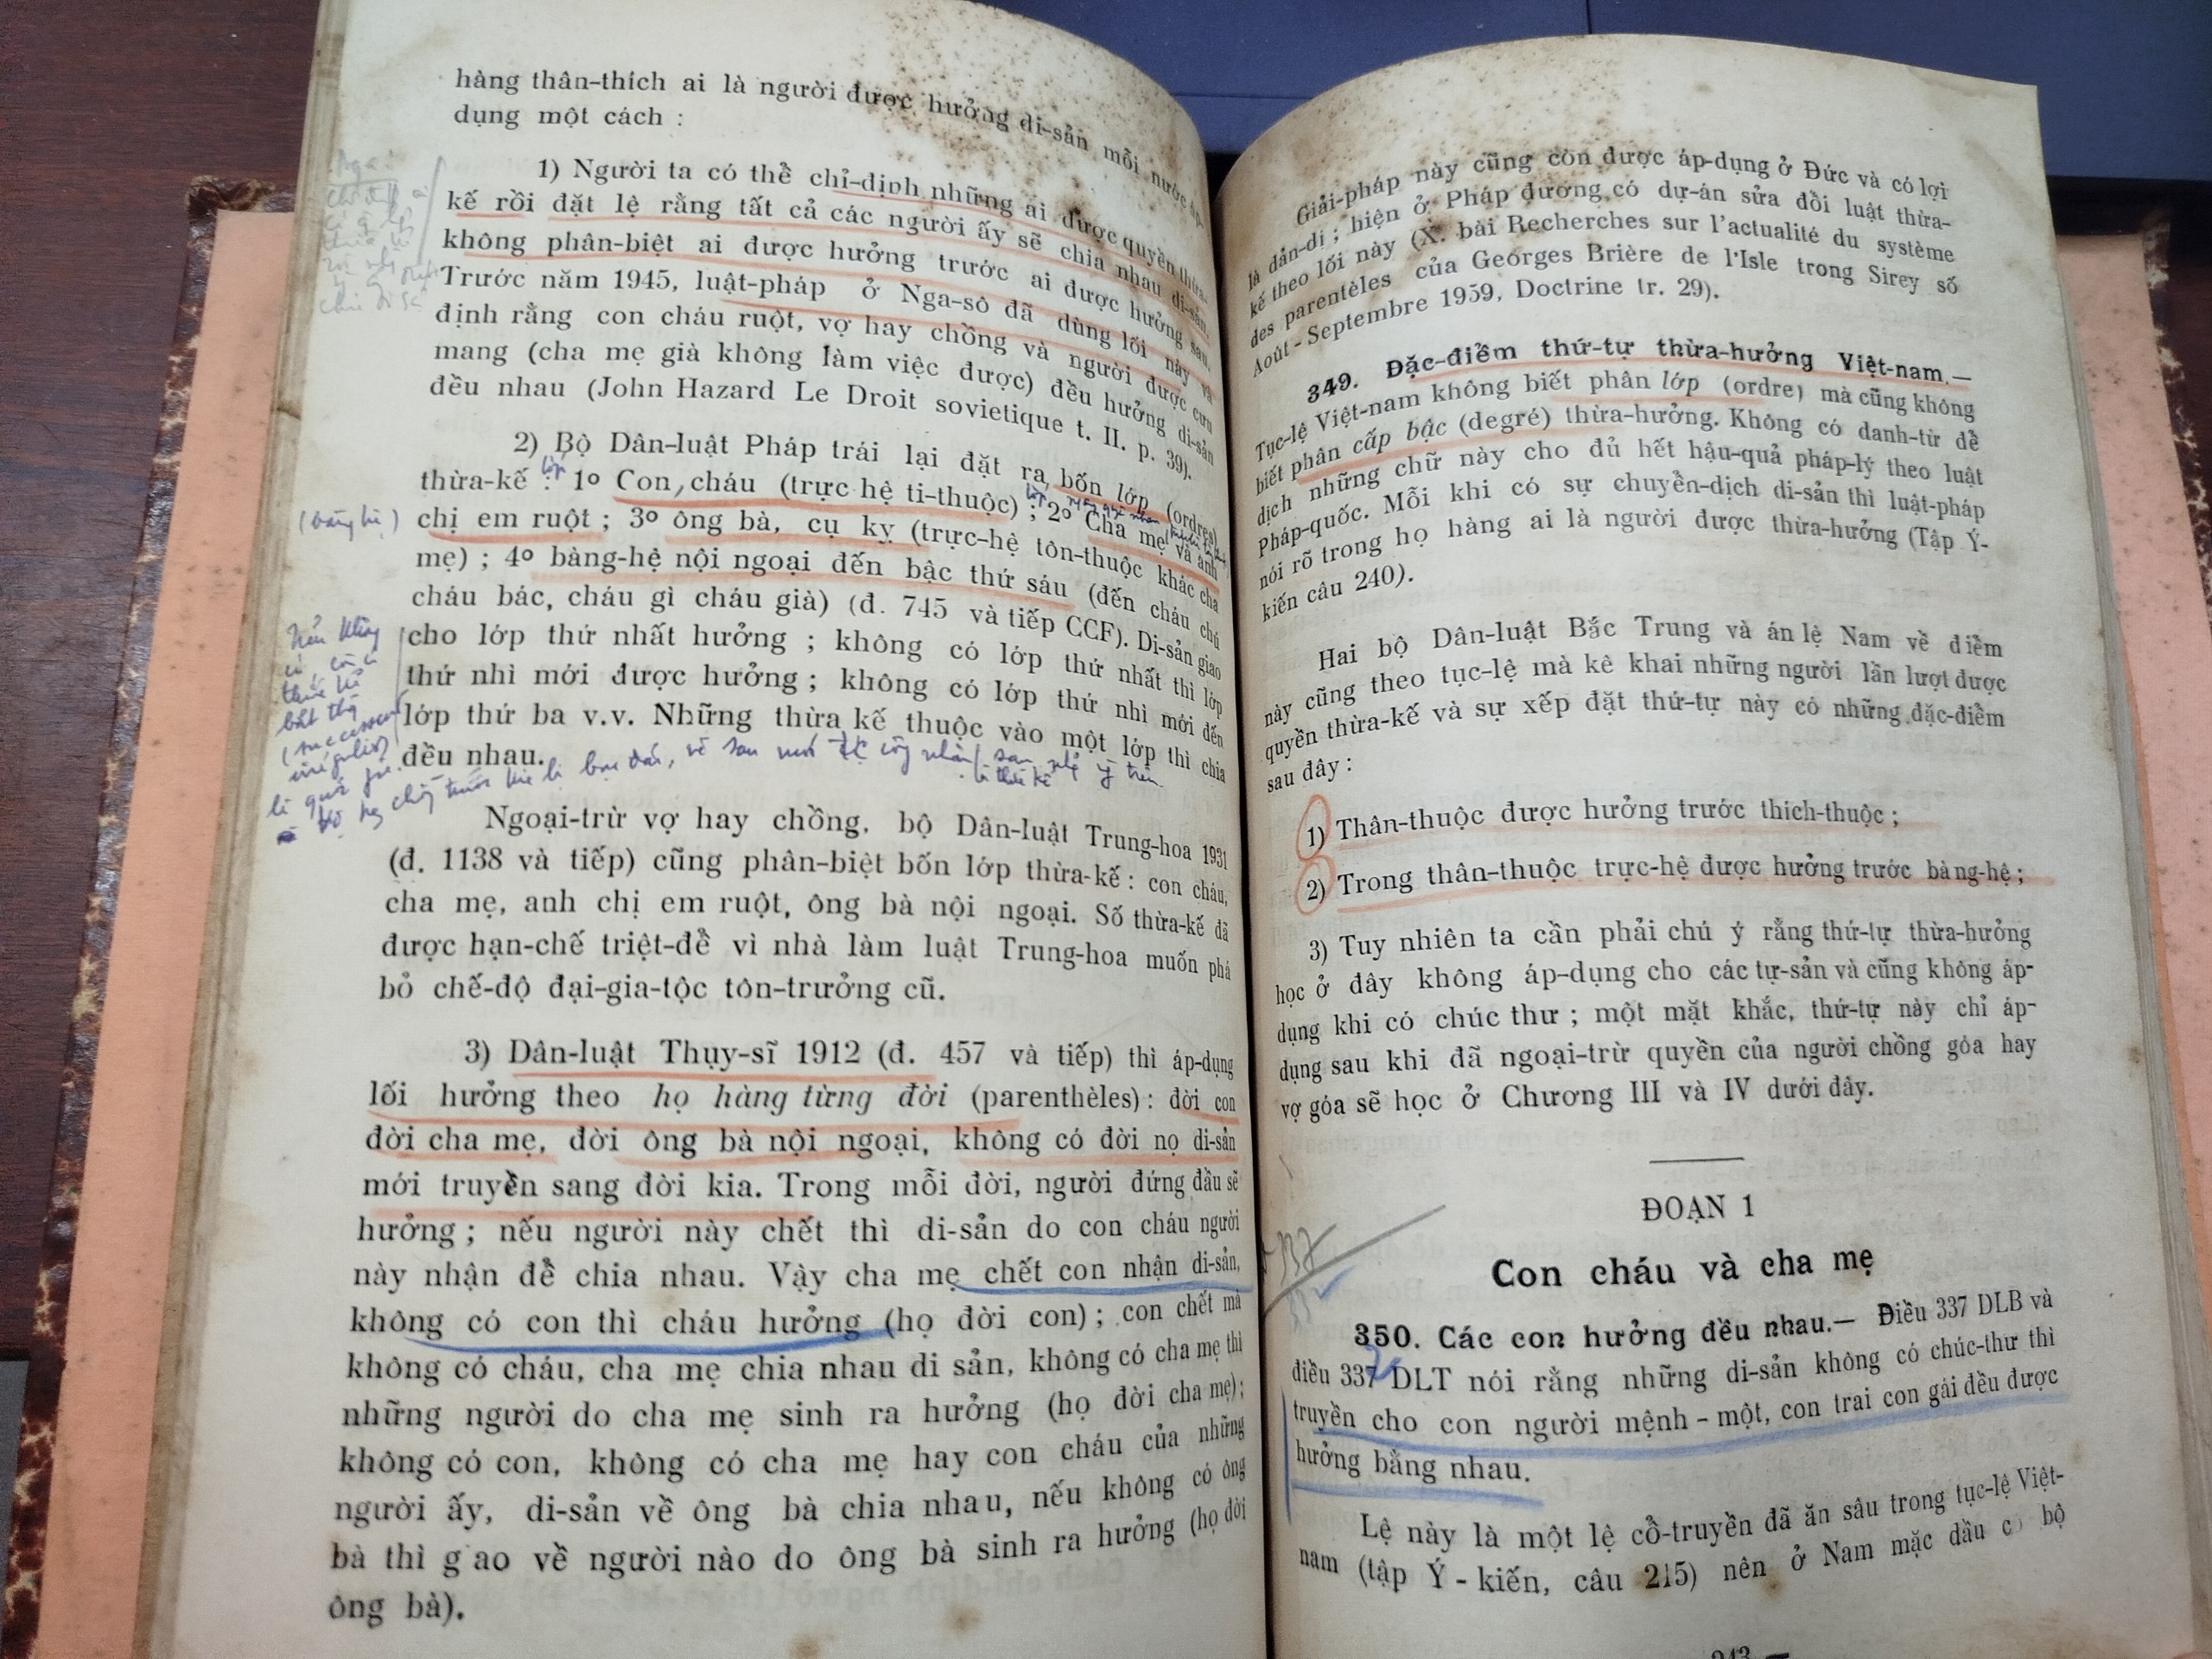 hàng thân-thích ai là người được hưởng di-sản mỗi nước áp-
dụng một cách :
1) Người ta có thể chỉ-định những ai được quyền thừa-
kế rồi đặt lệ rằng tất cả các người ấy sẽ chia nhau di-sản,
không phân-biệt ai được hưởng trước ai được hưởng sau.
Trước năm 1945, luật-pháp ở Nga-sô đã dùng lối này và
định rằng con cháu ruột, vợ hay chồng và người được cưu
mang (cha mẹ già không làm việc được) đều hưởng di-sản
đều nhau (John Hazard Le Droit sovietique t. II. p. 39).
2) Bộ Dân-luật Pháp trái lại đặt ra bốn lớp (ordres)
thừa-kế : 1º Con, cháu (trực-hệ ti-thuộc) ; 2º Cha mẹ và anh
(bàng hệ) chị em ruột ; 3º ông bà, cụ kỵ (trực-hệ tôn-thuộc khác cha
mẹ) ; 4º bàng-hệ nội ngoại đến bậc thứ sáu (đến cháu chú
cháu bác, cháu gì cháu già) (đ. 745 và tiếp CCF). Di-sản giao
cho lớp thứ nhất hưởng ; không có lớp thứ nhất thì lớp
thứ nhì mới được hưởng ; không có lớp thứ nhì mới đến
lớp thứ ba v.v. Những thừa kế thuộc vào một lớp thì chia
đều nhau.
Ngoại-trừ vợ hay chồng, bộ Dân-luật Trung-hoa 1931
(đ. 1138 và tiếp) cũng phân-biệt bốn lớp thừa-kế : con cháu,
cha mẹ, anh chị em ruột, ông bà nội ngoại. Số thừa-kế đã
được hạn-chế triệt-để vì nhà làm luật Trung-hoa muốn phá
bỏ chế-độ đại-gia-tộc tôn-trưởng cũ.
3) Dân-luật Thụy-sĩ 1912 (đ. 457 và tiếp) thì áp-dụng
lối hưởng theo họ hàng từng đời (parenthèles) : đời con
đời cha mẹ, đời ông bà nội ngoại, không có đời nọ di-sản
mới truyền sang đời kia. Trong mỗi đời, người đứng đầu sẽ
hưởng ; nếu người này chết thì di-sản do con cháu người
này nhận để chia nhau. Vậy cha mẹ chết con nhận di-sản,
không có con thì cháu hưởng (họ đời con) ; con chết mà
không có cháu, cha mẹ chia nhau di sản, không có cha mẹ thì
những người do cha mẹ sinh ra hưởng (họ đời cha mẹ) ;
không có con, không có cha mẹ hay con cháu của những
người ấy, di-sản về ông bà chia nhau, nếu không có ông
bà thì g ao về người nào do ông bà sinh ra hưởng (họ đời
ông bà).
Giải-pháp này cũng còn được áp-dụng ở Đức và có lợi
là dản-dị ; hiện ở Pháp đương có dự-án sửa đổi luật thừa-
kế theo lối này (X. bài Recherches sur l'actualité du système
des parentèles của Georges Brière de l'Isle trong Sirey số
Août - Septembre 1959, Doctrine tr. 29).
349. Đặc-điểm thứ-tự thừa-hưởng Việt-nam.—
Tục-lệ Việt-nam không biết phân lớp (ordre) mà cũng không
biết phân cấp bậc (degré) thừa-hưởng. Không có danh-từ để
dịch những chữ này cho đủ hết hậu-quả pháp-lý theo luật
Pháp-quốc. Mỗi khi có sự chuyển-dịch di-sản thì luật-pháp
nói rõ trong họ hàng ai là người được thừa-hưởng (Tập Ý-
kiến câu 240).
Hai bộ Dân-luật Bắc Trung và án lệ Nam về điểm
này cũng theo tục-lệ mà kê khai những người lần lượt được
quyền thừa-kế và sự xếp đặt thứ-tự này có những đặc-điểm
sau đây :
1) Thân-thuộc được hưởng trước thích-thuộc ;
2) Trong thân-thuộc trực-hệ được hưởng trước bàng-hệ ;
3) Tuy nhiên ta cần phải chú ý rằng thứ-tự thừa-hưởng
học ở đây không áp-dụng cho các tự-sản và cũng không áp-
dụng khi có chúc thư ; một mặt khắc, thứ-tự này chỉ áp-
dụng sau khi đã ngoại-trừ quyền của người chồng góa hay
vợ góa sẽ học ở Chương III và IV dưới đây.
ĐOẠN 1
Con cháu và cha mẹ
350. Các con hưởng đều nhau.— Điều 337 DLB và
điều 337 DLT nói rằng những di-sản không có chúc-thư thì
truyền cho con người mệnh - một, con trai con gái đều được
hưởng bằng nhau.
Lệ này là một lệ cổ-truyền đã ăn sâu trong tục-lệ Việt-
nam (tập Ý - kiến, câu 215) nên ở Nam mặc dầu bộ